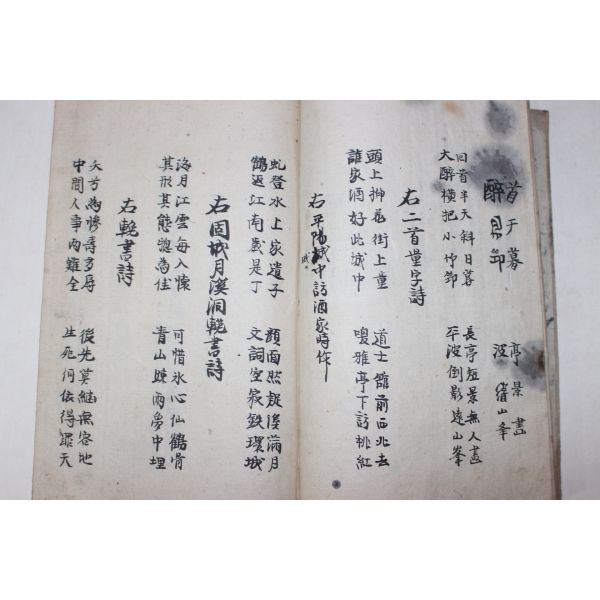 首于暮 亭景畵
醉易筇 山峯
回首半天斜日暮 長亭短景無人畵
大醉橫把小竹筇 平波倒影遠山峯
右二首量字詩
頭上 街上童 道士館前西北去
誰家酒好此城中 雅亭下訪桃紅
右平陽城中訪酒家時作
城
登水上家遺子 顔面照 後滿月
鶴返江南歲是丁 文詞空寂鉄環城
右固城月溪洞輓書詩
海月江雲每入懷 可惜氷心仙鶴骨
其形其態總為佳 青山疎雨夢中埋
右輓書詩
大方為慘壽多辱 後先莫繼無容地
中間人事內難全 生死何依得罪天